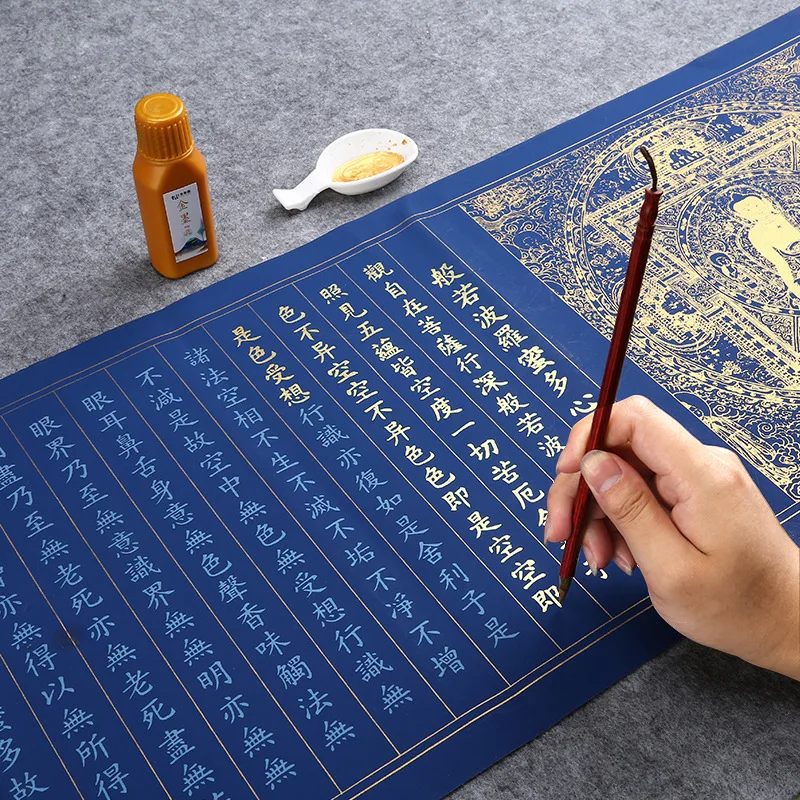 般若波羅蜜多心
觀自在菩薩行深般若波
照見五蘊皆空度一切苦厄
色不异空空不异色色即是空空即
是色受想行識亦復如是舍利子是
諸法空相不生不滅不垢不淨不增
不減是故空中無色無受想行識無
眼耳鼻舌身意無色聲香味觸法無
眼界乃至無意識界無無明亦無無
盡乃至無老死亦無老死盡無
亦無得以無所得
多故
金墨